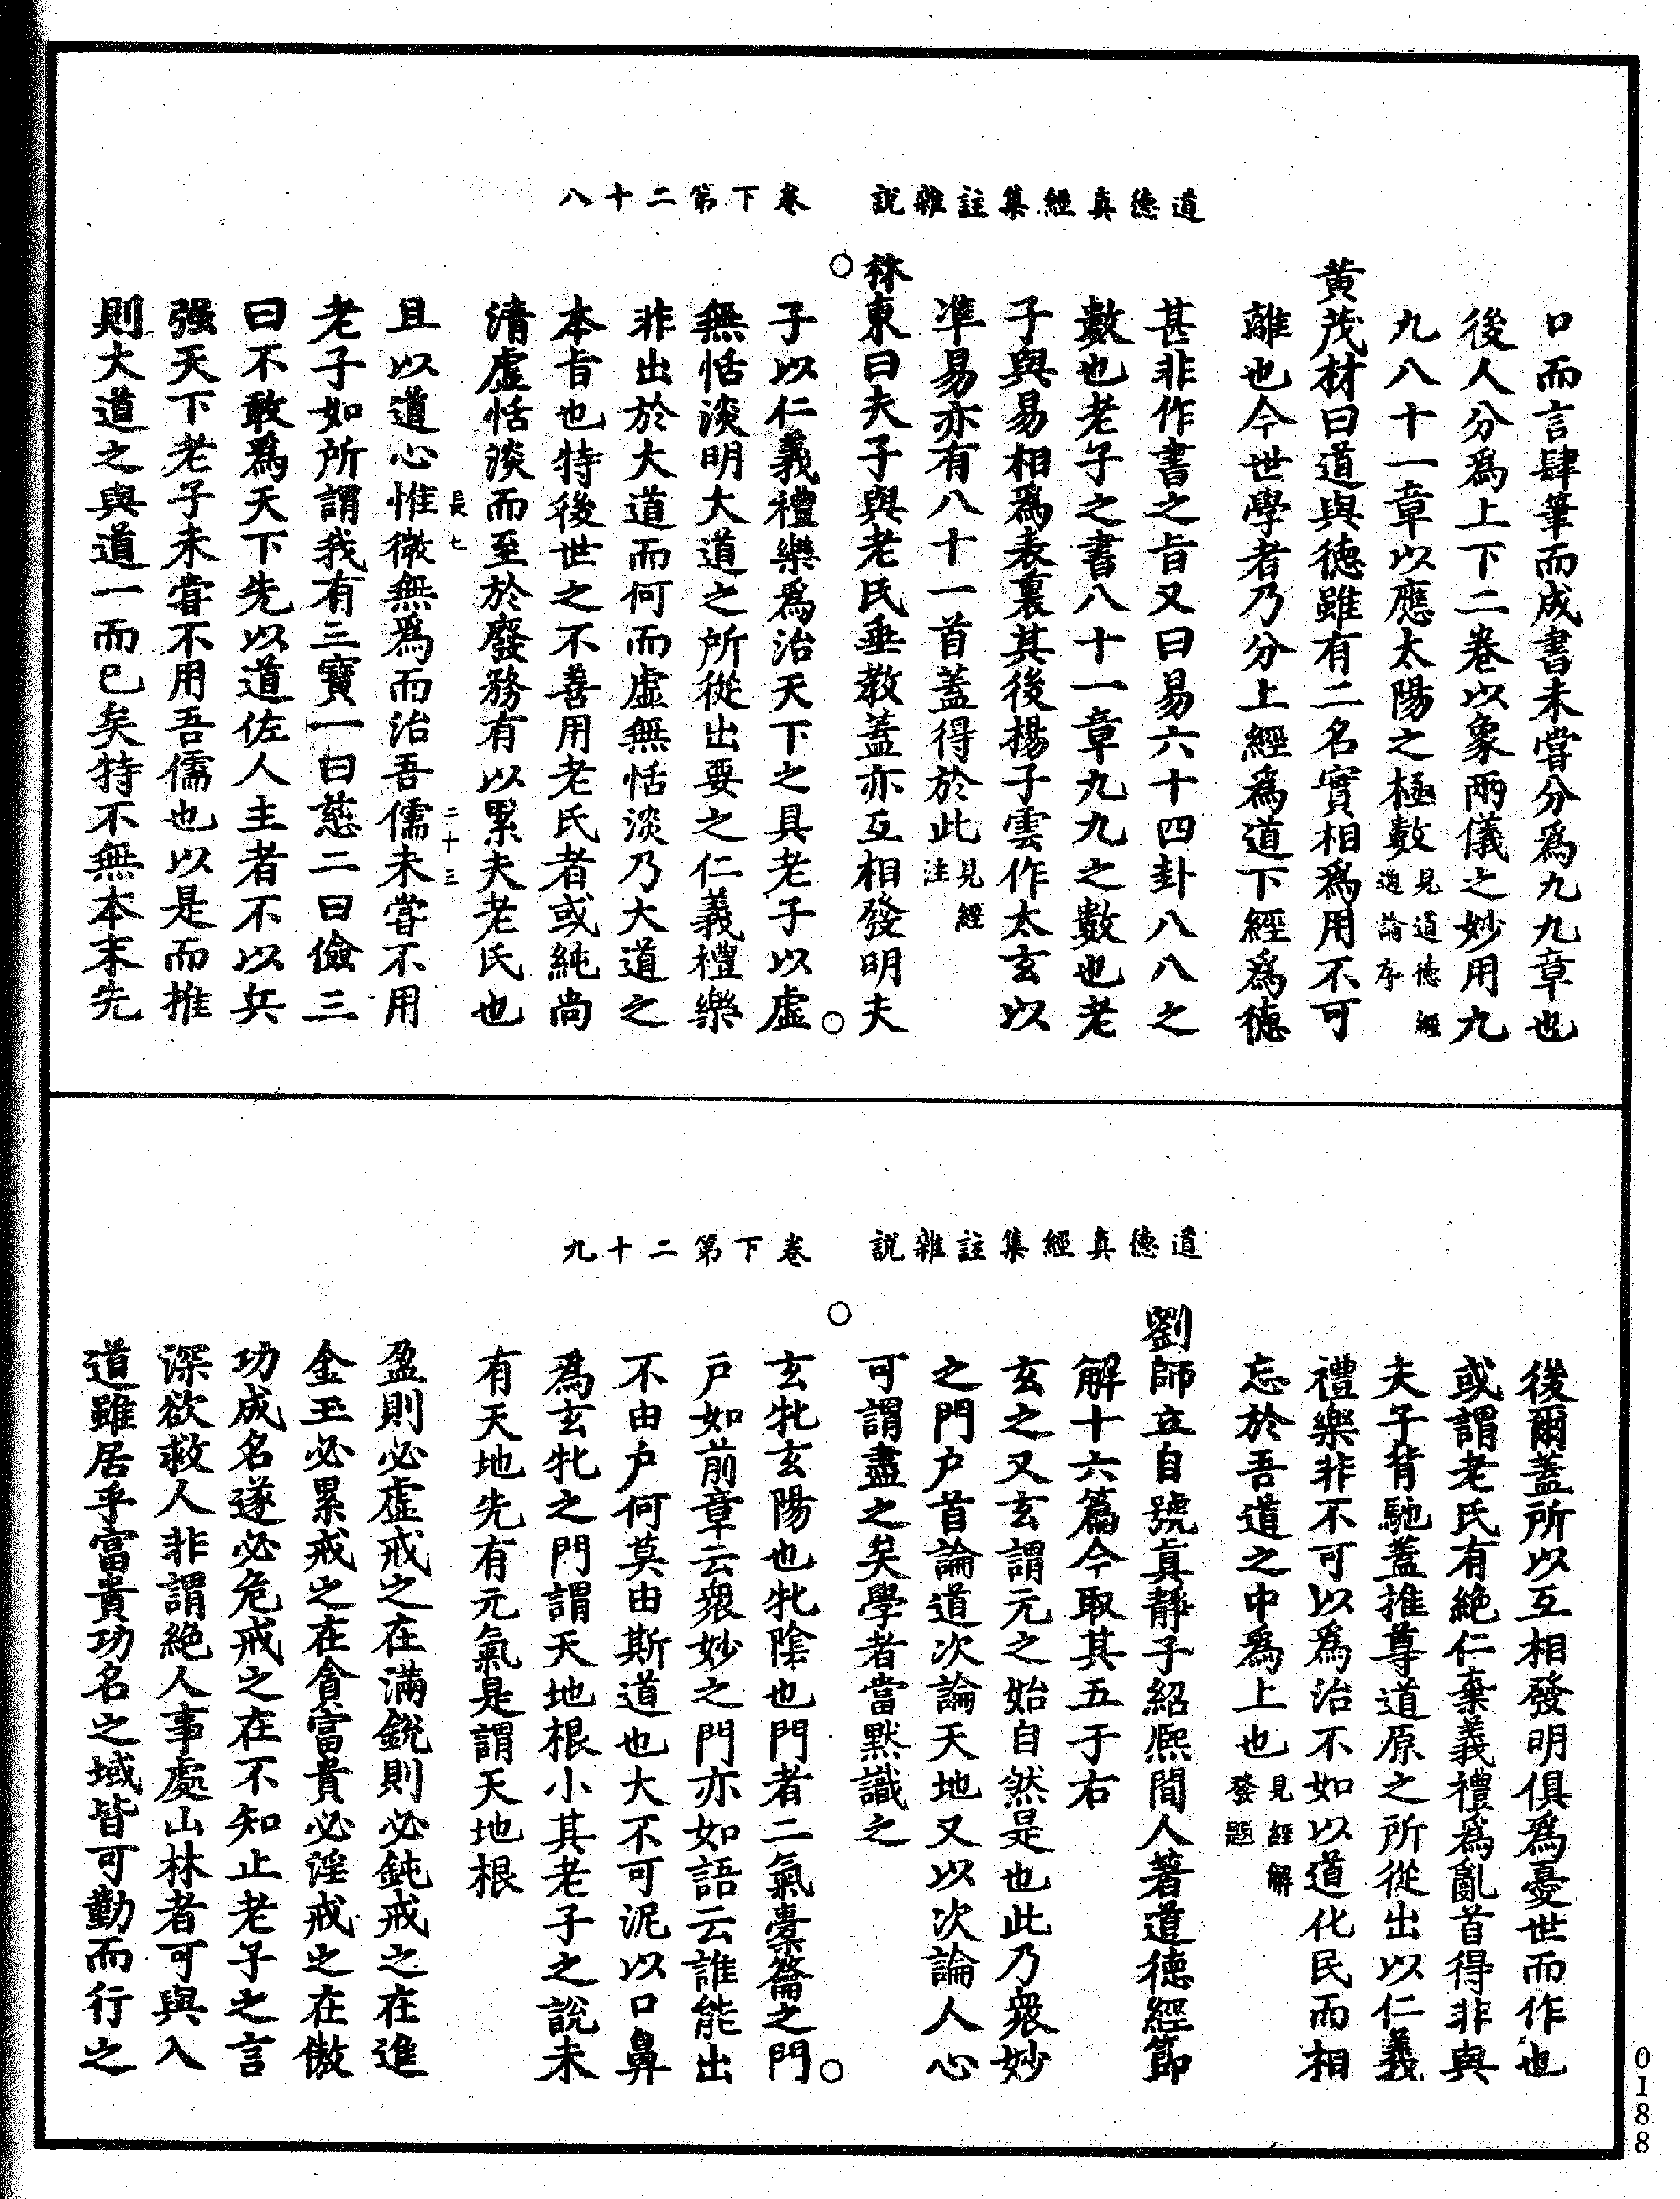 道德真經集註雜說　卷下第二十八
口而言肆筆而成書未嘗分爲九九章也
後人分爲上下二卷以象兩儀之妙用九
九八十一章以應太陽之極數見道德經通論序
黄茂材曰道與德雖有二名實相爲用不可
離也今世學者乃分上經爲道下經爲德
甚非作書之旨又曰易六十四卦八八之
數也老子之書八十一章九九之數也老
子與易相爲表裏其後楊子雲作太玄以
準易亦有八十一首蓋得於此見經注
林東曰夫子與老氏垂教蓋亦互相發明夫
子以仁義禮樂爲治天下之具老子以虛
無恬淡明大道之所從出要之仁義禮樂
非出於大道而何而虛無恬淡乃大道之
本旨也特後世之不善用老氏者或純尚
清虛恬淡而至於廢務有以累夫老氏也
長七　二十三
且以道心惟微無爲而治吾儒未嘗不用
老子如所謂我有三寶一曰慈二曰儉三
曰不敢爲天下先以道佐人主者不以兵
强天下老子未嘗不用吾儒也以是而推
則大道之與道一而已矣特不無本末先
道德真經集註雜說　卷下第二十九
後爾蓋所以互相發明俱爲憂世而作也
或謂老氏有絶仁棄義禮爲亂首得非與
夫子背馳蓋推尊道原之所從出以仁義
禮樂非不可以爲治不如以道化民而相
忘於吾道之中爲上也見經解發題
劉師立自號真靜子紹熈間人著道德經節
解十六篇今取其五于右
玄之又玄謂元之始自然是也此乃衆妙
之門户首論道次論天地又以次論人心
可謂盡之矣學者當默識之
玄牝玄陽也牝陰也門者二氣橐籥之門
户如前章云衆妙之門亦如語云誰能出
不由户何莫由斯道也大不可泥以口鼻
爲玄牝之門謂天地根小其老子之説未
有天地先有元氣是謂天地根
盈則必虛戒之在滿鋭則必鈍戒之在進
金玉必累戒之在貪富貴必淫戒之在傲
功成名遂必危戒之在不知止老子之言
深欲救人非謂絶人事處山林者可與入
道雖居乎富貴功名之域皆可勤而行之
0188